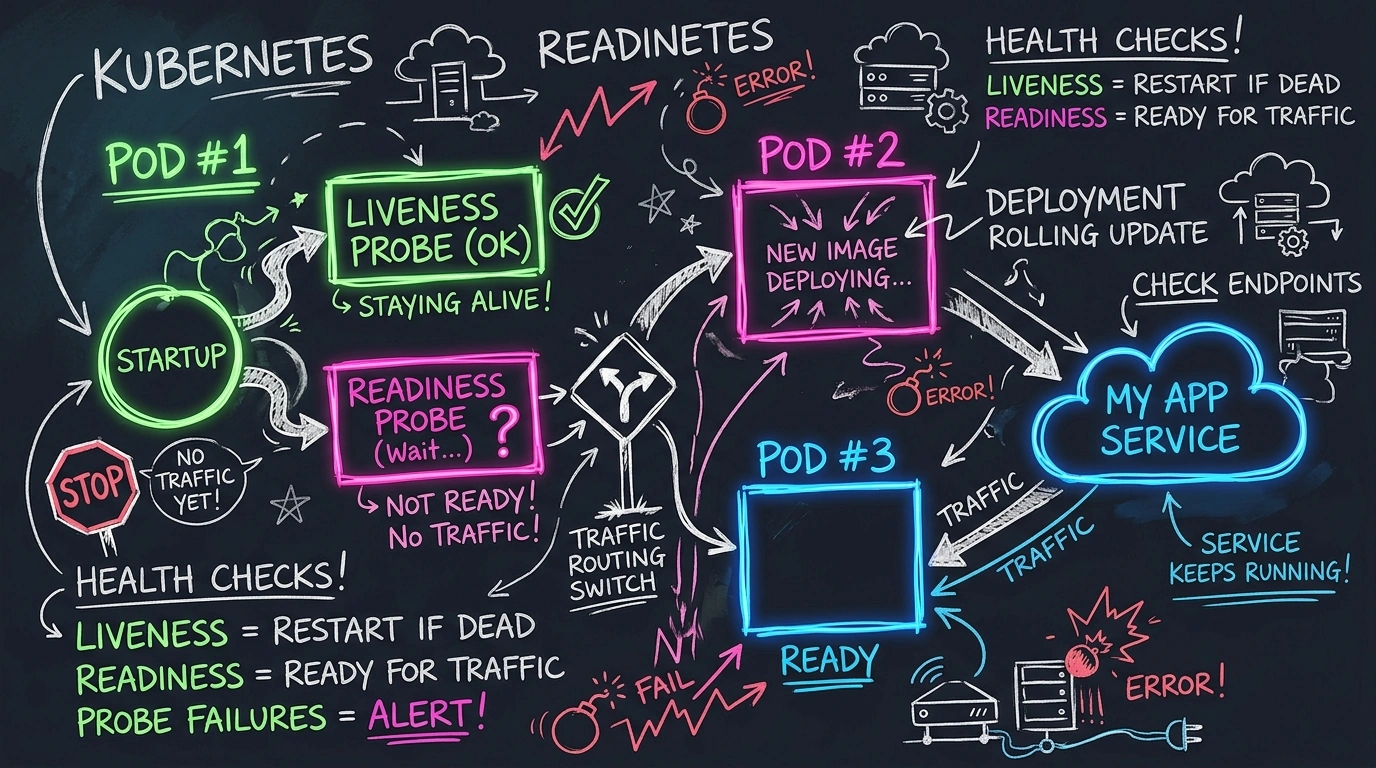 KUBERNETES
READINETES
ERROR!
HEALTH CHECKS!
LIVENESS = RESTART IF DEAD
READINESS = READY FOR TRAFFIC
POD #1
LIVENESS
PROBE (OK)
STAYING ALIVE!
STARTUP
READINESS
PROBE
(Wait...)
?
NOT READY!
NO TRAFFIC!
STOP
NO
TRAFFIC
YET!
TRAFFIC
ROUTING
SWITCH
POD #2
NEW IMAGE
DEPLOYING...
DEPLOYMENT
ROLLING UPDATE
CHECK ENDPOINTS
ERROR!
MY APP
SERVICE
POD #3
READY
TRAFFIC
TRAFFIC
SERVICE
KEEPS RUNNING!
HEALTH CHECKS!
LIVENESS = RESTART IF DEAD
READINESS = READY FOR TRAFFIC
PROBE FAILURES = ALERT!
FAIL
ERROR!